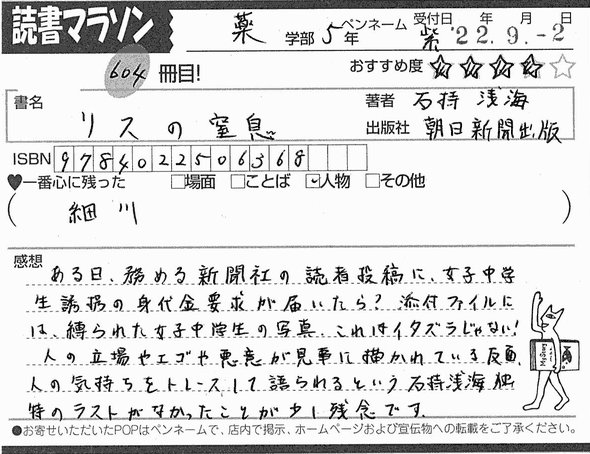 読書マラソン
薬 学部 5年 ペンネーム 紫 受付日 '22.9.-2 年 月 日
604 冊目!
おすすめ度 ★★★★☆
書名 リスの窒息
著者 石持 浅海
出版社 朝日新聞出版
ISBN 9784022506368
♥一番心に残った □場面 □ことば ☑人物 □その他
( 細川 )
感想
ある日、務める新聞社の読者投稿に、女子中学
生誘拐の身代金要求が届いたら? 添付ファイルに
は、縛られた女子中学生の写真。これはイタズラじゃない!
人の立場やエゴや悪意が見事に描かれている反面、
人の気持ちをトレースして語られるという石持浅海 独
特のラストがなかったことが少し残念です。
●お寄せいただいたPOPはペンネームで、店内で掲示、ホームページおよび宣伝物への転載をご了承ください。